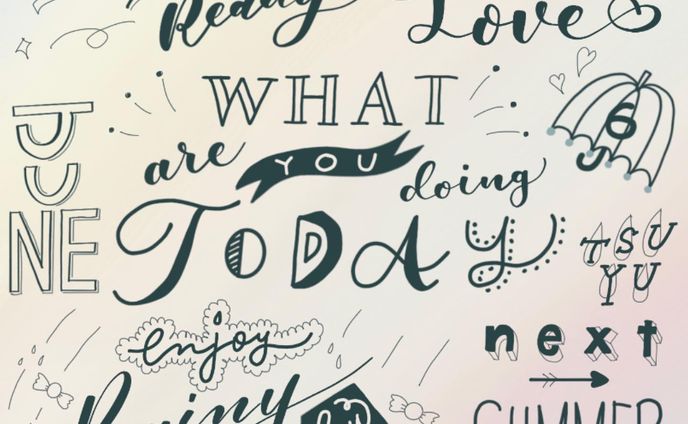 Ready
Love
WHAT
JUNE
are YOU doing
6
TODAY
TSU
YU
enjoy
next
Rainy
SUMMER